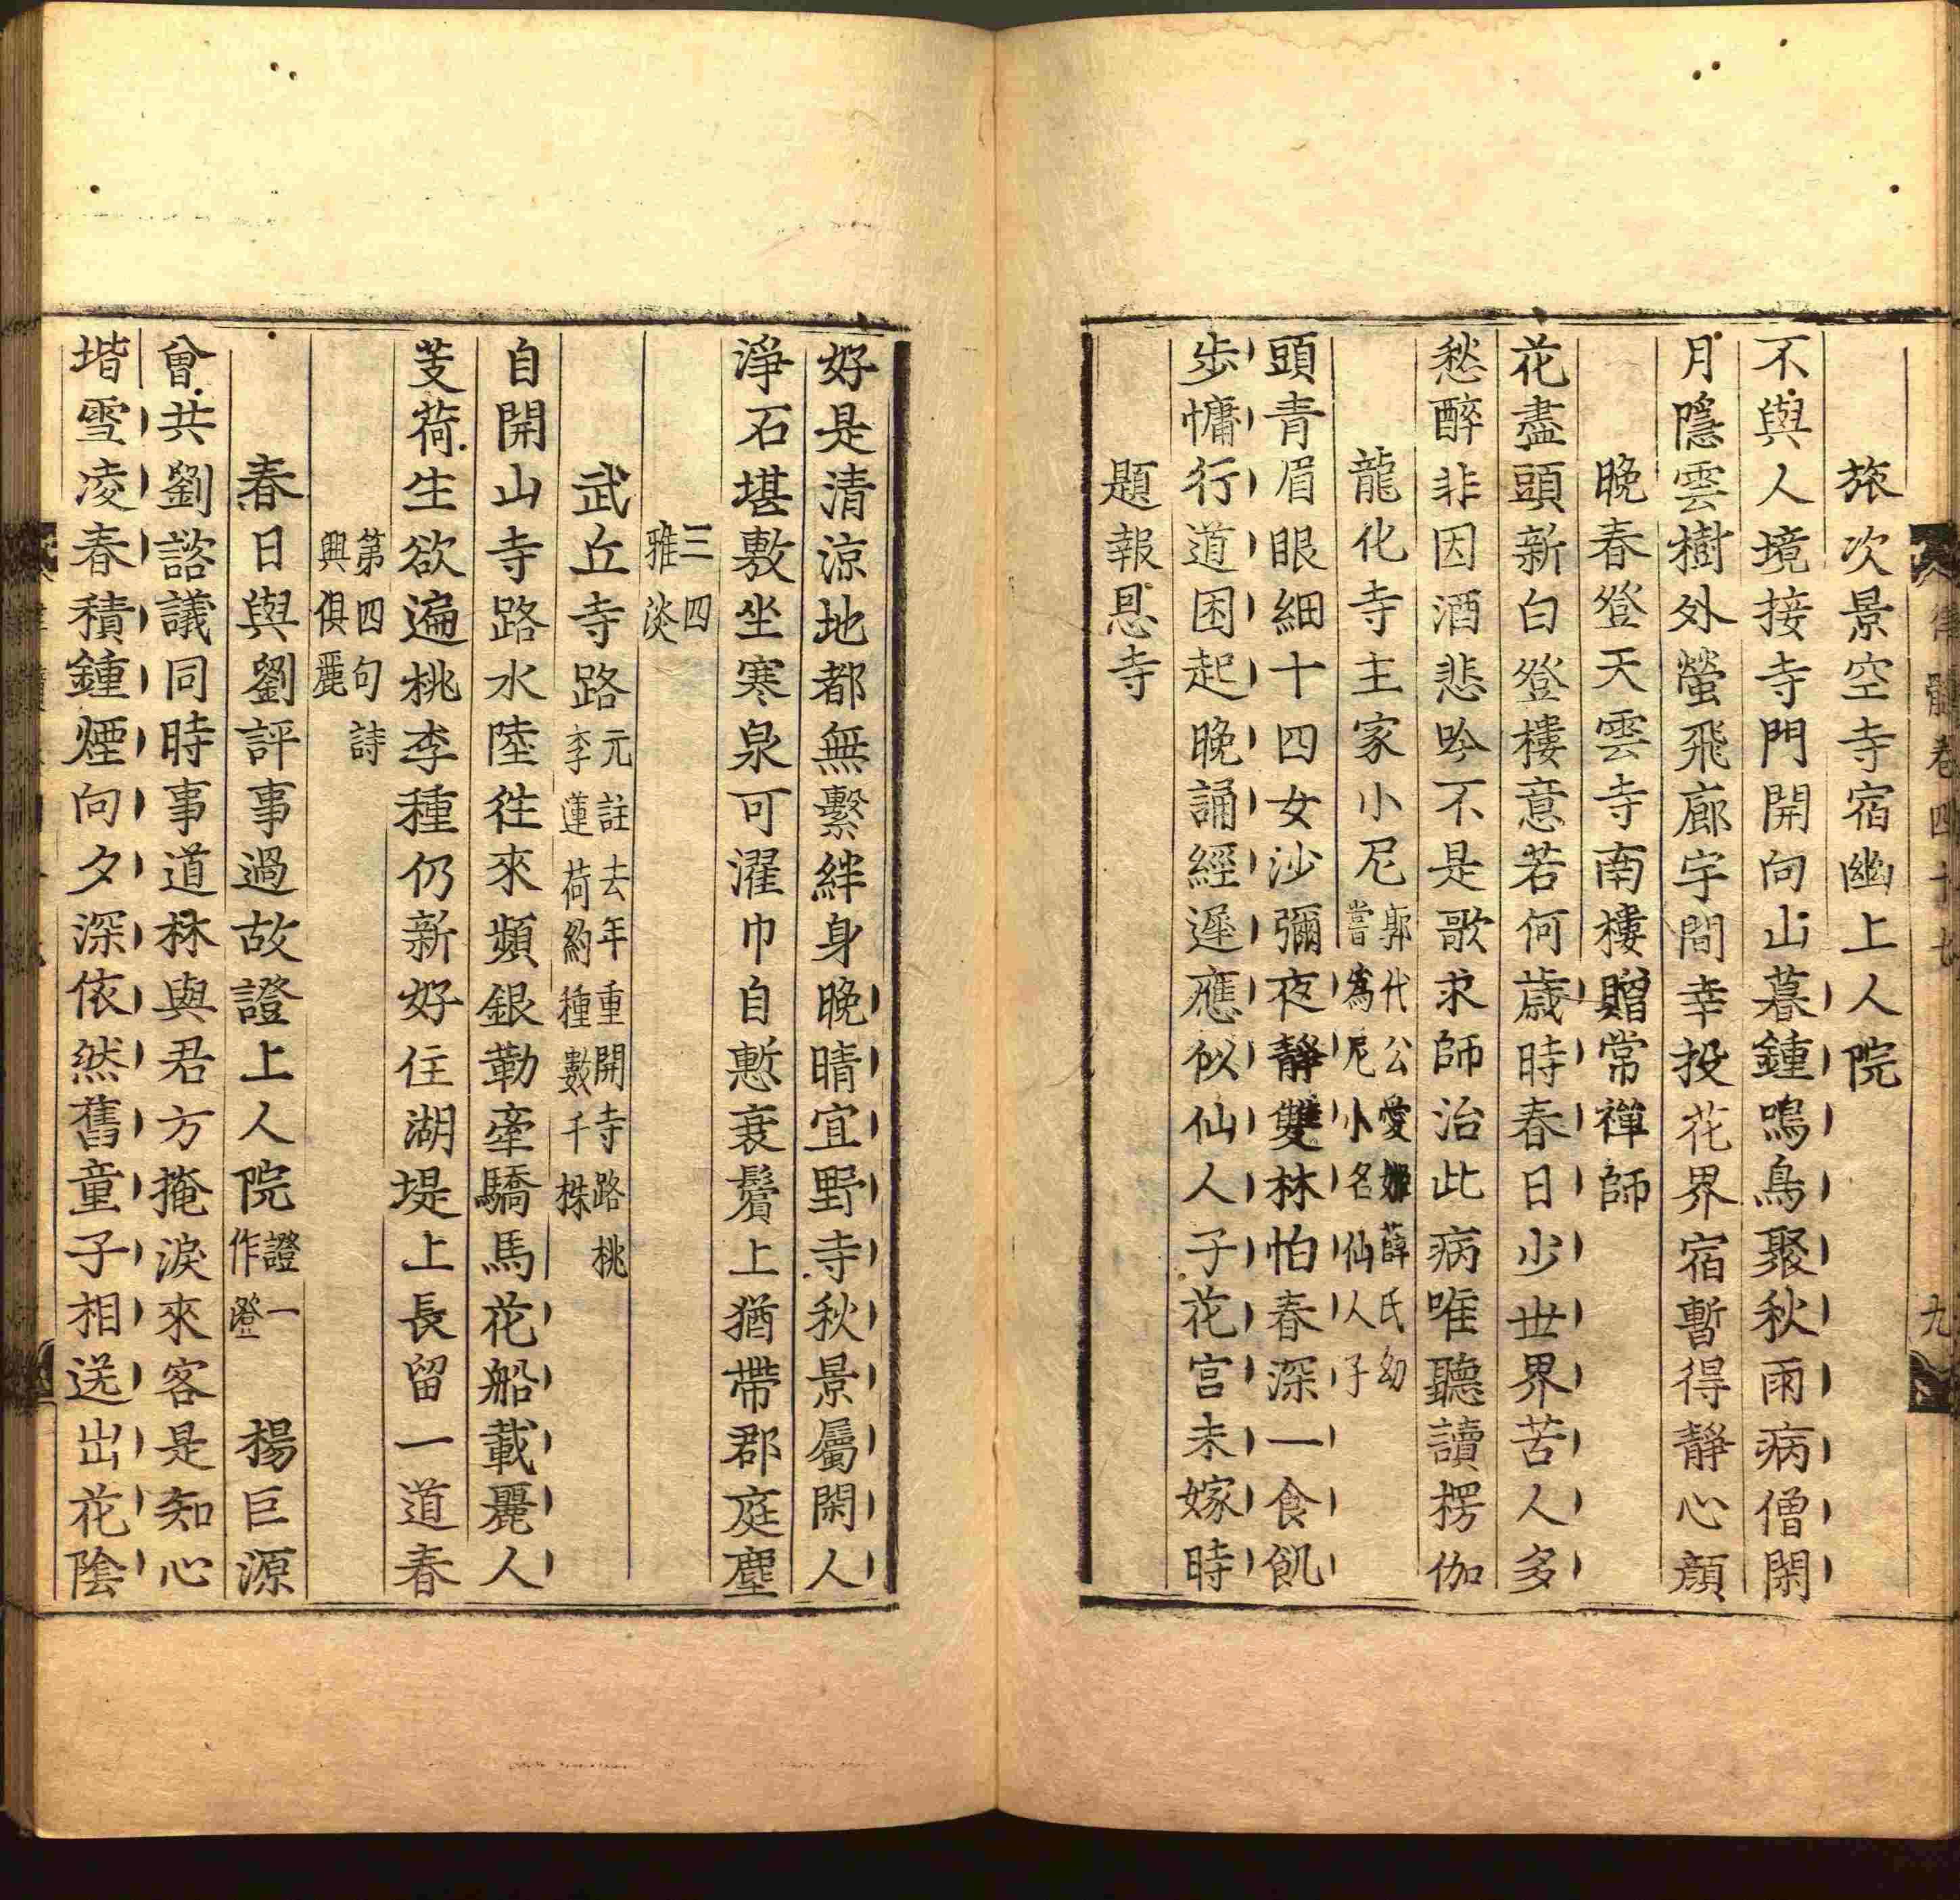 律髓卷四十七 九
旅次景空寺宿幽上人院
不與人境接寺門開向山暮鍾鳴鳥聚秋雨病僧閑
月隱雲樹外螢飛廊宇間幸投花界宿暫得靜心顔
晚春登天雲寺南樓贈常禪師
花盡頭新白登樓意若何歲時春日少世界苦人多
愁醉非因酒悲吟不是歌求師治此病唯聽讀楞伽
龍化寺主家小尼郭代公愛姬薛氏幼嘗爲尼小名仙人子
頭青眉眼細十四女沙彌夜靜雙林怕春深一食飢
步慵行道困起晚誦經遲應似仙人子花宫未嫁時
題報恩寺
好是清涼地都無繫絆身晚晴宜野寺秋景屬閑人
淨石堪敷坐寒泉可濯巾自慙衰鬢上猶帶郡庭塵
三四雅淡
武丘寺路元註去年重開寺路桃李蓮荷約種數千株
自開山寺路水陸徃來頻銀勒牽驕馬花船載麗人
芰荷生欲遍桃李種仍新好住湖堤上長留一道春
第四句詩興俱麗
春日與劉評事過故證上人院證一作澄 楊巨源
曾共劉諮議同時事道林與君方掩淚來客是知心
堦雪凌春積鍾煙向夕深依然舊童子相送出花陰